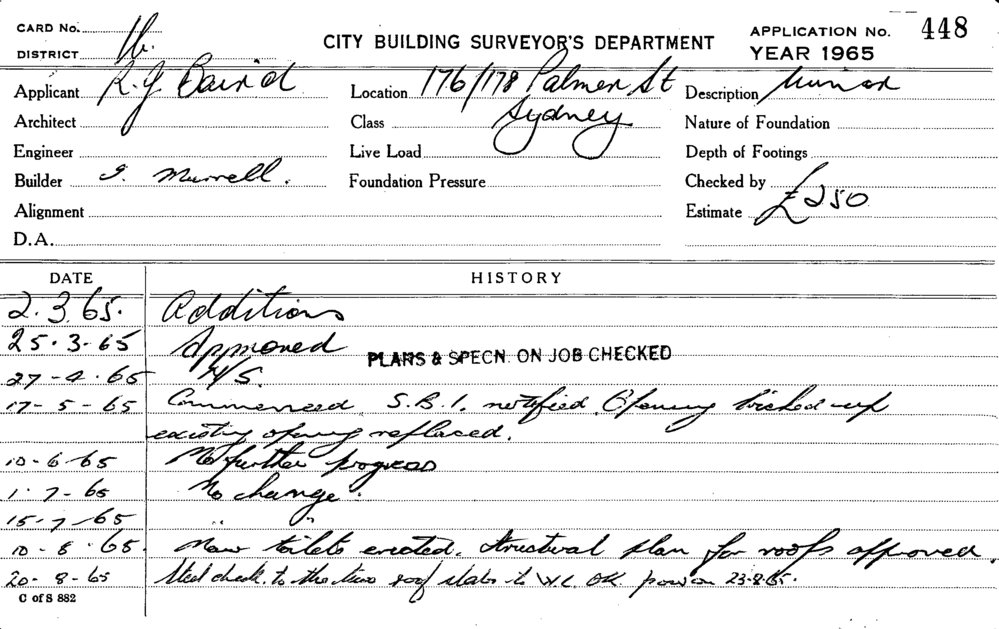 CARD No.
DISTRICT
CITY BUILDING SURVEYOR'S DEPARTMENT
APPLICATION No. 448
YEAR 1965
Applicant R.J. Baird
Location 176/178 Palmer St
Sydney
Description
Architect
Class
Nature of Foundation
Engineer
Live Load
Depth of Footings
Builder Murrell.
Foundation Pressure
Checked by
Alignment
Estimate £250
D.A.
DATE HISTORY
2.3.65. Additions
25.3.65 Approved PLANS & SPECN. ON JOB CHECKED
27-4.65 N/S.
17-5-65 Commenced. S.B.I. notified. Opening bricked-up
existing opening replaced.
10-6-65 No further progress
1.7-65 No change.
15-7-65 " "
10-8.65. New toilets erected. Structural plan for roofs approved.
20-8-65 Steel check to the two roof slabs to W.C. OK pour on 23-8-65.
C of S 882